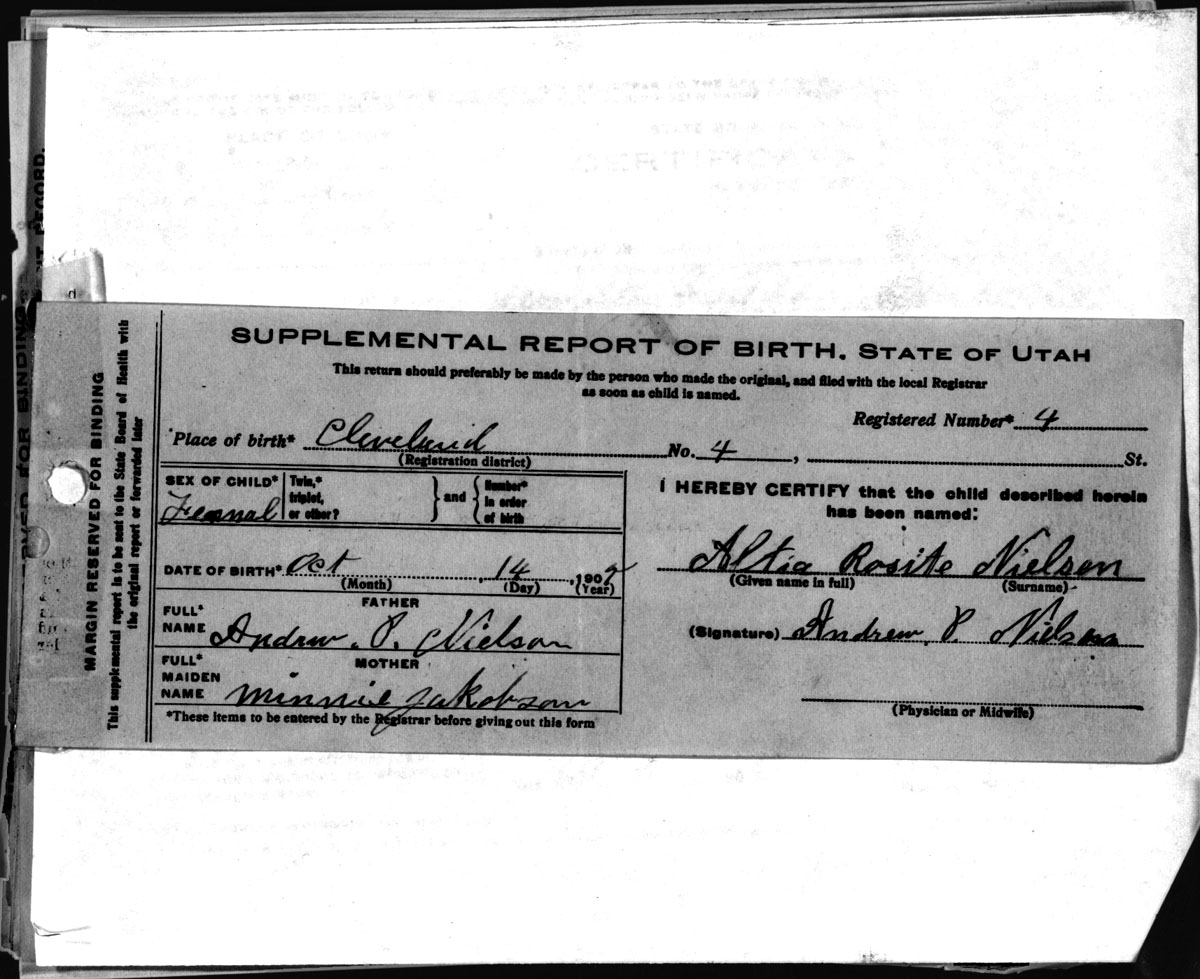 SUPPLEMENTAL REPORT OF BIRTH. STATE OF UTAH
This return should preferably be made by the person who made the original, and filed with the local Registrar
as soon as child is named.
Registered Number* 4
Place of birth* Cleveland No. 4, St.
(Registration district)
SEX OF CHILD* Femal
Twin,* triplet, or other? } and { Number* in order of birth
DATE OF BIRTH* Oct 14, 190
(Month) (Day) (Year)
FATHER
FULL* NAME Andrew. P. Nielson
MOTHER
FULL* MAIDEN NAME Minnie Jakobson
*These items to be entered by the Registrar before giving out this form
I HEREBY CERTIFY that the child described herein
has been named:
Altia Rosite Nielson
(Given name in full) (Surname)
(Signature) Andrew P. Nielson
(Physician or Midwife)
MARGIN RESERVED FOR BINDING
This supplemental report is to be sent to the State Board of Health with
the original report or forwarded later
FOR BINDING
RECORD.